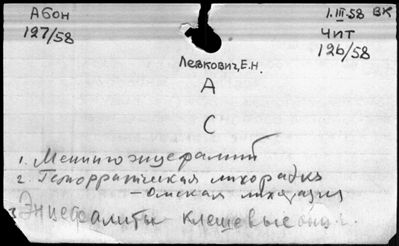 Абон 1.III.58 ВК
127/58 Чит
126/58
Левкович, Е.Н.
А
С
1. Менингоэнцефалит
2. Геморрагическая лихорадка
– Омская лихорадка
Энцефалиты клещевые